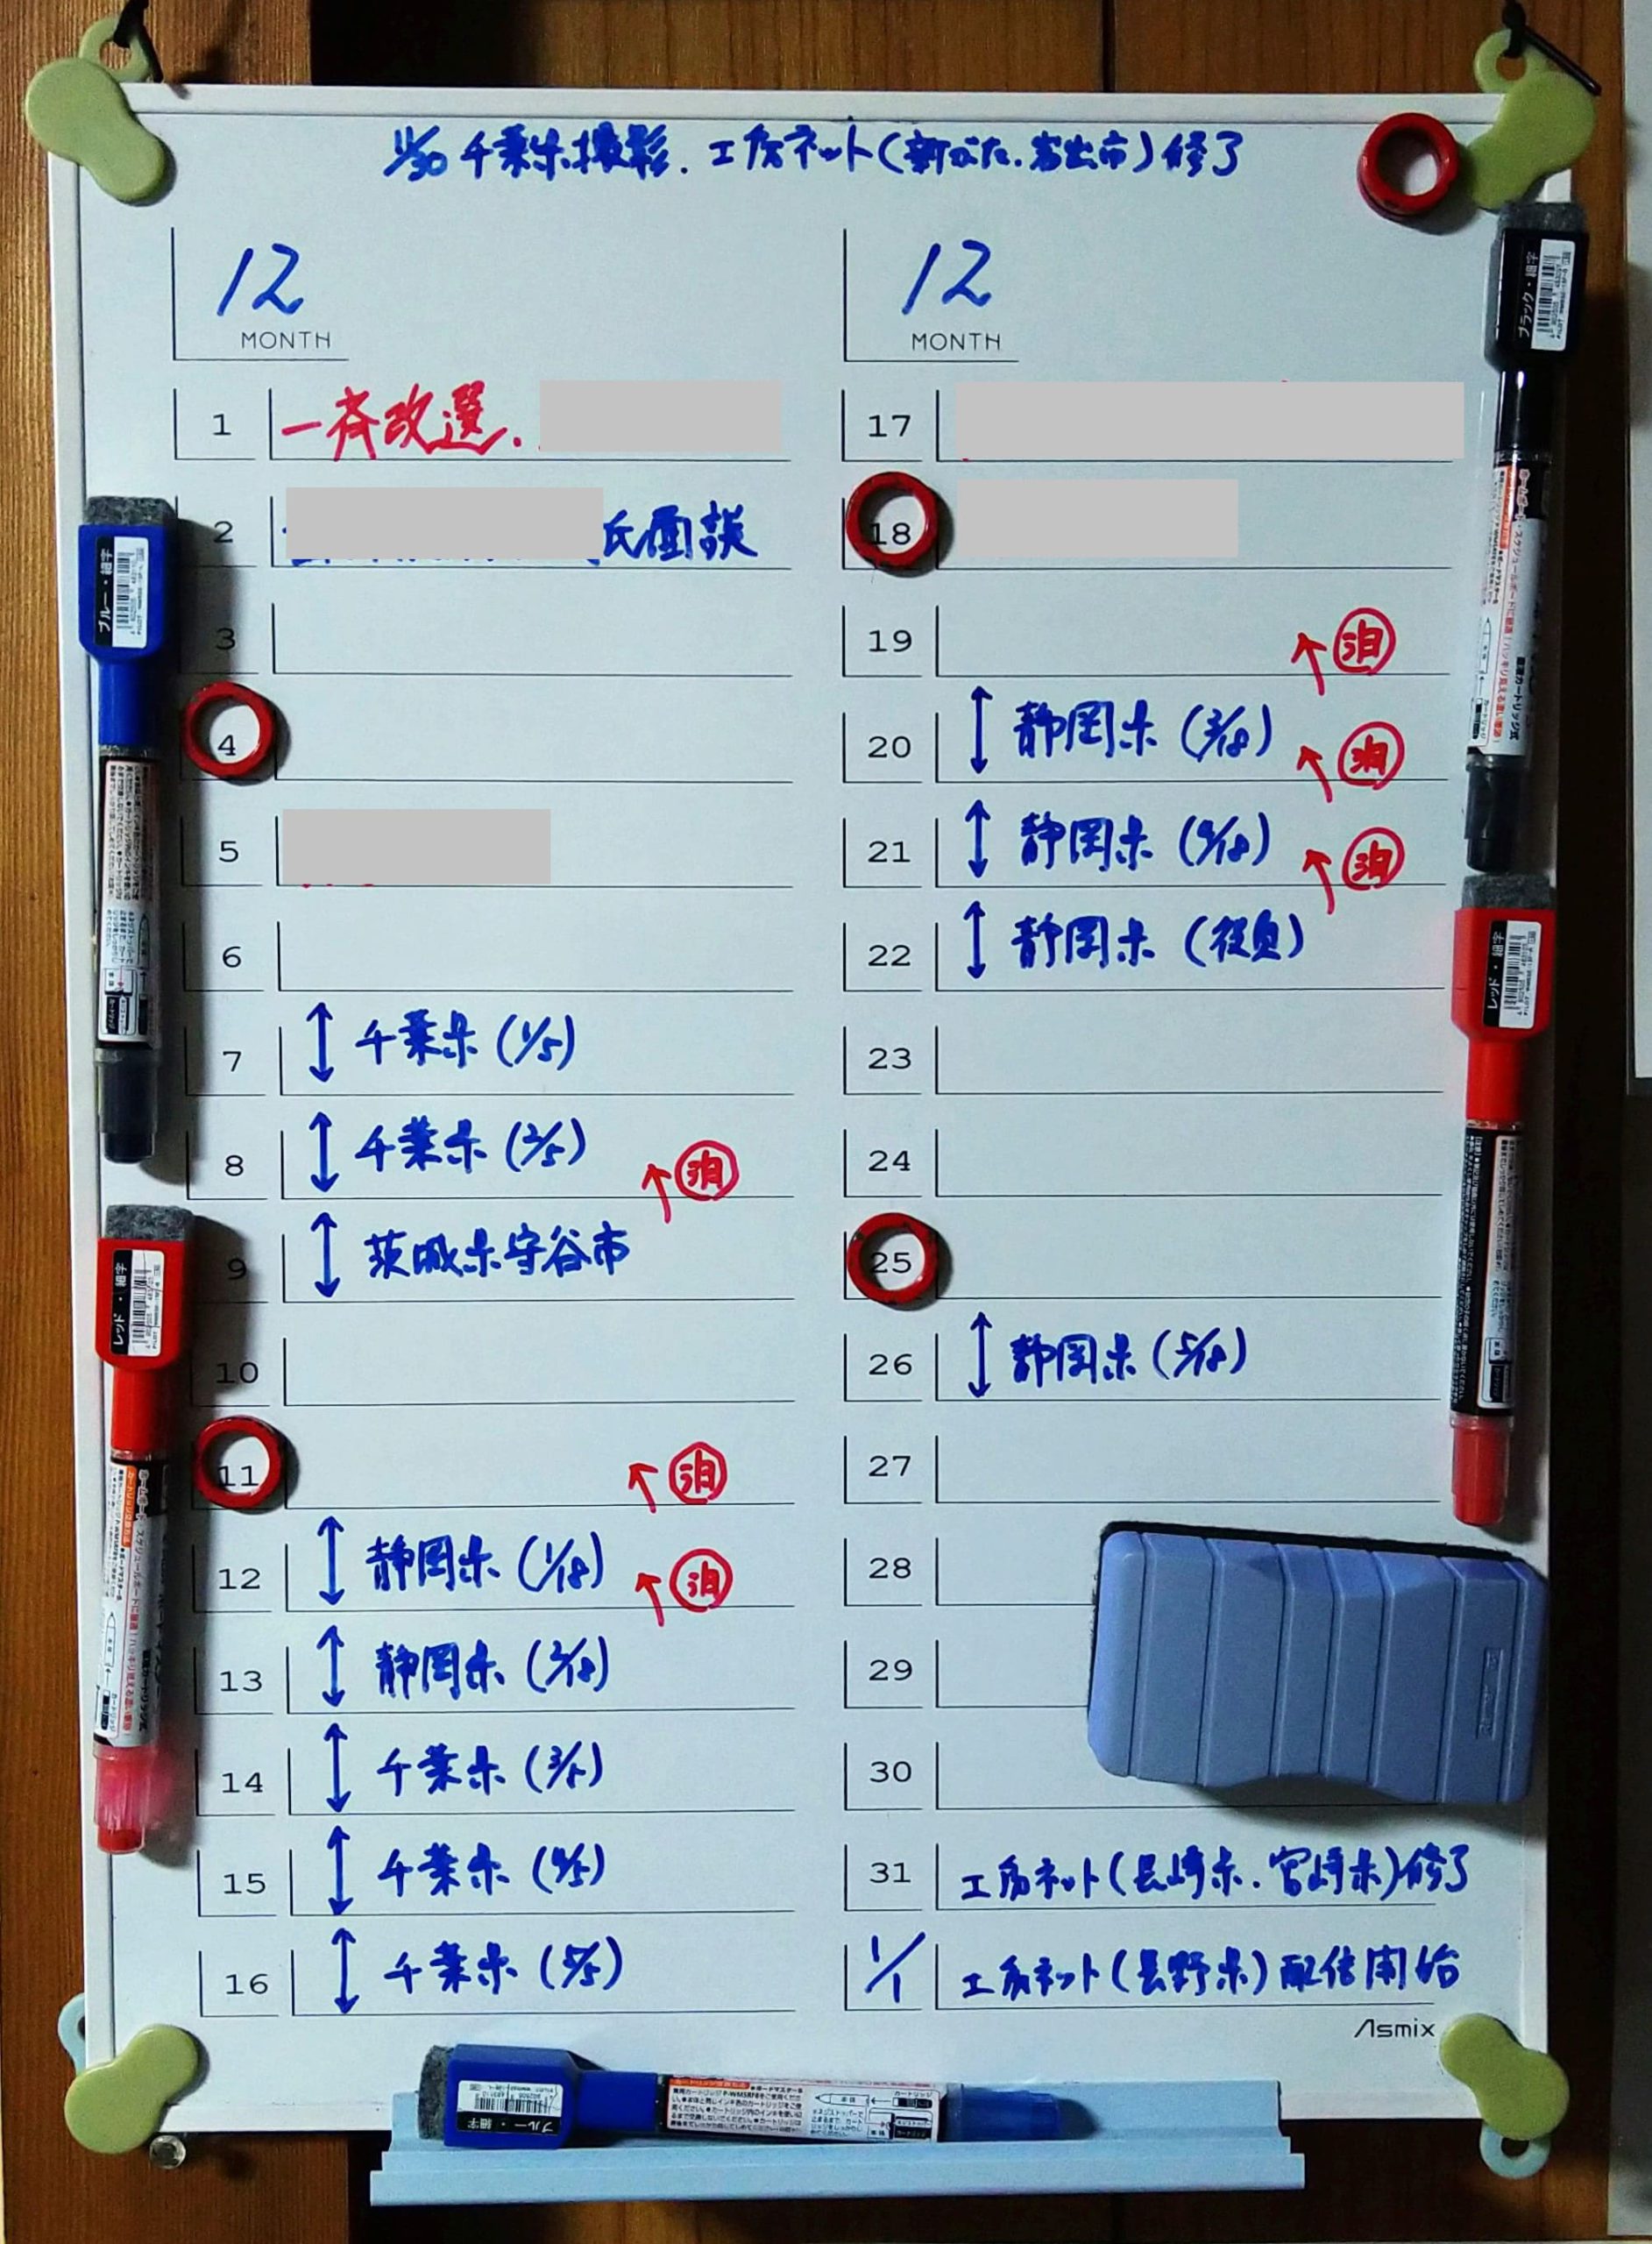 11/30 千葉県撮影.工房ネット(新がた.岩出市)修了
12
MONTH
1 一斉改選.
2 氏面談
3
4
5
6
7 千葉県(1/5)
8 千葉県(2/5) 泊
9 茨城県守谷市
10
11 泊
12 静岡県(1/18) 泊
13 静岡県(2/18)
14 千葉県(3/5)
15 千葉県(4/5)
16 千葉県(5/5)
12
MONTH
17
18
19 泊
20 静岡県(3/18) 泊
21 静岡県(4/18) 泊
22 静岡県(役員)
23
24
25
26 静岡県(5/18)
27
28
29
30
31 工房ネット(長崎県.宮崎県)修了
1/1 工房ネット(長野県)配信開始
Asmix
ブルー・細字
レッド・細字
ブラック・細字
レッド・細字
ブルー・細字